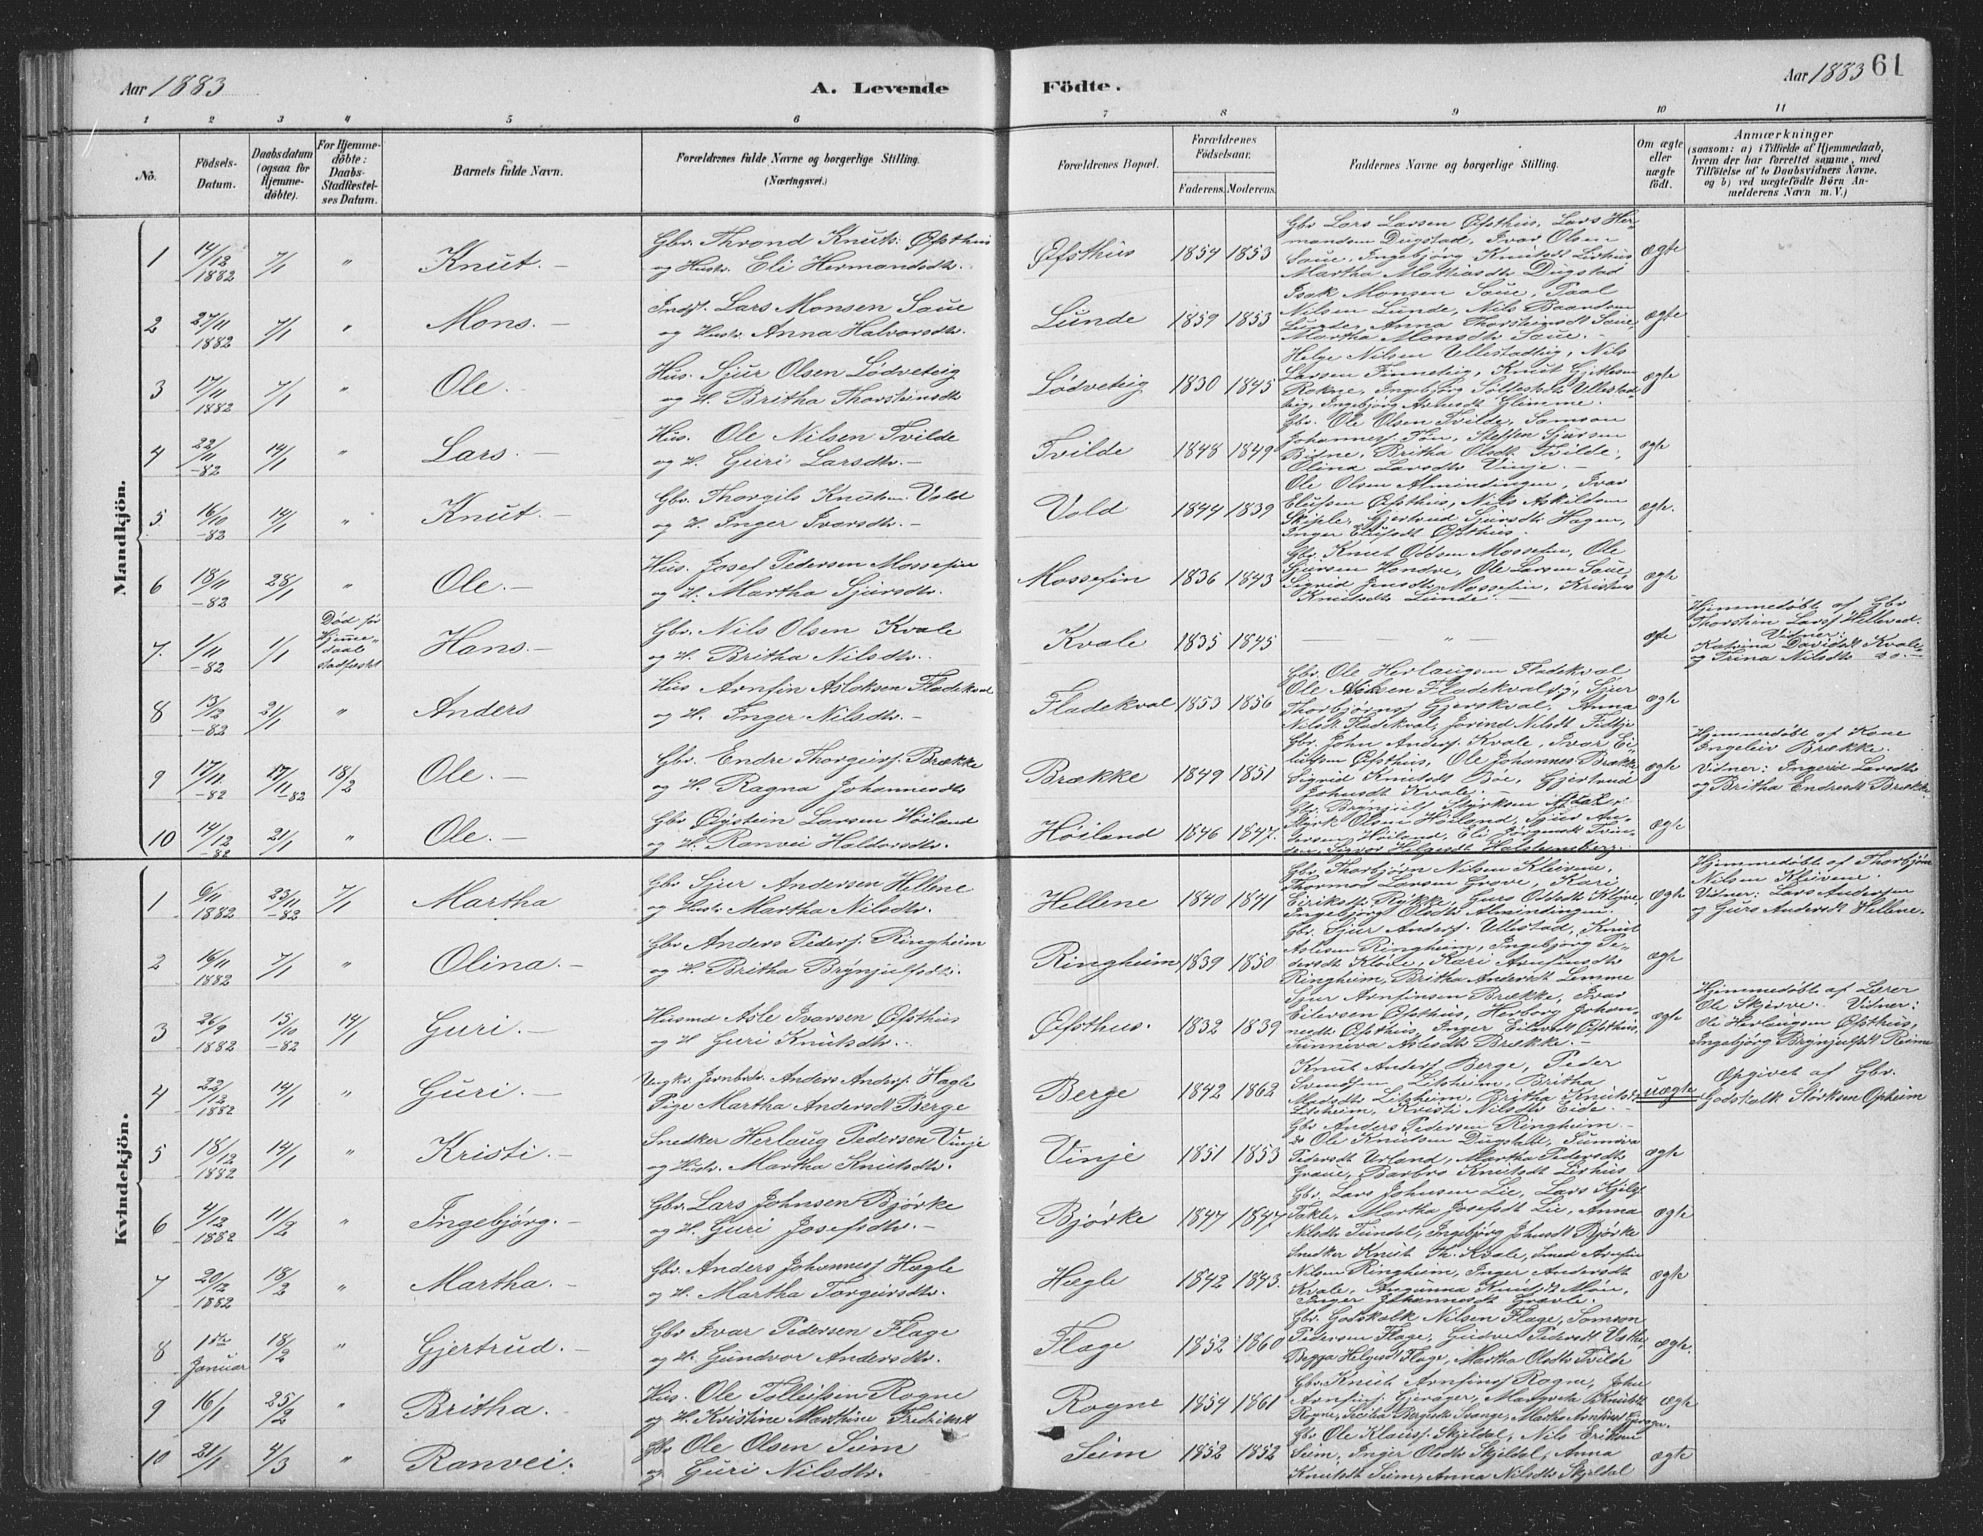 Aar 1883
A. Levende Födte.
Aar 1883 61
1 2 3 4 5 6 7 8 9 10 11
No.
Födsels-Datum.
Daabsdatum (ogsaa for Hjemme-döbte).
For Hjemme-döbte: Daabs-Stadfæstel-ses Datum.
Barnets fulde Navn.
Forældrenes fulde Navne og borgerlige Stilling. (Næringsvei.)
Forældrenes Bopæl.
Forældrenes Födselsaar.
Faderens. Moderens.
Faddernes Navne og borgerlige Stilling.
Om ægte eller uægte födt.
Anmærkninger
(saasom: a) i Tilfælde af Hjemmedaab,
hvem der har forrettet samme, med
Tilföielse af to Daabsvidners Navne,
og b) ved uægtefödte Börn An-
melderens Navn m. V.)
Mandkjön.
1 14/12 1882 7/1 " Knut. –
Gbr. Thrond Knuts. Øfsthus
og Hustr. Eli Hermandsdtr.
Øfsthus 1854 1853
Gbr Lars Larsen Øfsthus, Lars Her-
mandsen Dugstad, Ivar Olsen
Saue, Ingebjørg Knutsdt Lirhus
Martha Mathiasdtr Dugstad
ægte
2 27/11 1882 7/1 " Mons. –
Indst. Lars Monsen Saue
og Hustr. Anna Halvorsdtr.
Lunde 1859 1853
Isak Monsen Saue, Paal
Nilsen Lunde, Nils Baardsen
Lunde, Anna Thorsteinsdt Saue,
Martha Monsdtr Saue.
ægte
3 17/11 1882 7/1 " Ole. –
Hus. Sjur Olsen Lödveteig
og H. Britha Thorsteinsdtr
Lödveteig 1830 1845
Helge Nilsen Ullestadteig, Nils
Larsen Finneteig, Knut Gjetlesen
Rokne, Ingebjørg
teig, Ingebjörg Glimme.
ægte
4 22/11 –82 14/1 " Lars. –
Hus. Ole Nilsen Tvilde
og H. Guri Larsdtr. –
Tvilde 1848 1849
Gbr. Ole Olsen Tvilde, Samson
Johannes. Tön, Steffen Sjursen
Bidne, Britha Olsdt Tvilde,
Olina Larsdtr Vinje. –
ægte
5 16/10 –82 14/1 " Knut. –
Gbr. Thorgils Knutsen Vold
og H. Inger Ivarsdtr. –
Vold 1844 1839
Ole Olsen Almindingen, Ivar
Elufsen Øfsthus, Nils Askildsen
Skiple, Gjertrud Sjursdtr Hagen,
Inger Elufsdt Øfsthus.
ægte.
6 18/11 –82 28/1 " Ole. –
Hus. Josef Pedersen Mossefin
og H. Martha Sjursdtr.
Mossefin 1836 1843
Gbr. Knut Oddsen Mossefin, Ole
Sjursen Hondve, Ole Larsen Saue
Sigrid Jonsdtr Mossefin, Kristine
Knutsdtr Lunde. –
ægte
7. 1/11 –82 1/1 Död för Hjemme-daab stadfæstet Hans. –
Gbr. Nils Olsen Kvale
og H. Britha Nilsdtr.
Kvale 1835 1845
— " —
ægte
Hjemmedöbt af Gbr
Thorstein Lars. Helleved.
Vidner:
Katrina Davidsdt Kvale
og Trina Nilsdtr do. –
8 13/12 –82 21/1 " Anders
Hus Arnfin Aslaksen Fladekval
og H. Inger Nilsdtr. –
Fladekval 1853 1856
Gbr. Ole Herlaugsen Fladekval
Ole Nilsen Fladekvalsg., Sjur
Thorbjörns. Gjerskval, Anna
Nilsdt Fladekval, Jorind Nilsdt Fidtje
ægte
9 17/11 –82 17/11 –82 18/2 Ole. –
Gbr. Endre Thorgeirs. Brække
og H. Ragna Johannesdtr
Brække 1849 1851
Gbr. John Anders. Kvale, Ivar Ei-
lufsen Øfsthus, Ole Johannes. Brække
Sigrid Knutsdt Böe, Gjertrud
Johnsdt Kvale. –
ægte
Hjemmedöbt af Kone
Ingeleiv Brække.
Vidner: Ingerid Larsdtr
og Britha Endresdt Brække.
10 14/12 –82 21/1 " Ole. –
Gbr Øystein Larsen Höiland
og H. Ranvei Haldorsdtr.
Höiland 1846 1847.
Gbr. Brynjulf Styrksen
Styrk Olsen Höiland, Sjur An-
dersen Höiland, Eli
ægte
Kvindekjön.
1 6/11 1882 23/11 –82 7/1 Martha
Gbr Sjur Andersen Hellene
og Hustr. Martha Nilsdtr.
Hellene 1840 1841
Gbr. Thorbjörn Nilsen Kleivene,
Thormod Larsen Grove, Kari
Eiriksdt Rykke, Guro Oddsdt Klyve
Ingebjörg Olsdt Almindingen.
ægte
Hjemmedöbt af Thorbjörn
Nilsen Kleivene.
Vidner: Lars Andersen
og Guro Andersdt Hellene.
2 16/11 1882 7/1 " Olina. –
Gbr Anders Peders. Ringheim
og H. Britha Brynjulfsdtr.
Ringheim 1839 1850
Gbr. Sjur Anders. Ullestad, Knut
Aslesen Ringheim, Ingebjörg Pe-
dersdt Klöve, Kari Arnfinsdtr
Ringheim, Britha Andersdt Lemme
ægte
3 26/9 1882 15/10 –82 14/1 Guri. –
Husmd Asle Ivarsen Øfsthus
og H Guri Knutsdtr.
Øfsthus. 1832 1839
Sjur Arnfinsen Brække, Ivar
Eilevsen Øfsthus, Herborg Johan-
nesdt Øfsthus, Inger Eilevsdt Øfsthus,
Sunneva Aslesdtr Brække. –
ægte
Hjemmedöbt af Lærer
Ole Skjerve. Vidner:
Ole Herlaugsen Øfsthus,
Ingebjörg Brynjulfsdt Reime
4 22/12 1882 14/1 " Guri. –
Ungkr. Jernbrbr. Anders Anders. Hagle
Pige Martha Andersdt Berge
Berge 1842 1862
Knut Anders. Berge, Peder
Svendsen Lidsheim, Britha
Madsdtr Lidsheim, Britha Knutsdtr
Lidsheim, Kristi Nilsdtr Eide. –
uægte
Opgivet af Gbr.
Godskalk Störksen Opheim
5 18/12 1882 14/1 " Kristi. –
Snedker Herlaug Pedersen Vinje
og Hustr. Martha Knutsdtr.
Vinje 1851 1853
Gbr Anders Pedersen Ringheim. –
do Ole Knutsen Dugstad, Sunniva
Pedersdt Urland, Martha Pedersdt
Graue, Barbro Knutsdt Lirhus
ægte
6 4/12 1882 11/2 " Ingebjörg. –
Gbr. Lars Johnsen Bjørke
og H. Guri Josefsdtr. –
Bjørke 1847 1847.
Gbr. Lars Johnsen Lie, Lars Kjels.
Takle, Martha Josefsdt Lie, Anna
Nilsdt Tundal, Ingebjørg Johnsdt Bjørke
ægte
7 20/12 1882 18/2 " Martha. –
Gbr. Anders Johannes. Hægle
og H. Martha Torgersdtr.
Hægle 1842 1843.
Snedker Knut Th. Kvale, Smed Arnfin
Nilsen Ringheim, Inger Andersdt
Kvale, Angunna Knutsdt Möen,
Inger Johannesdt Gravle.
ægte
8 1ste Januar 18/2 " Gjertrud. –
Gbr Ivar Pedersen Flage
og H. Gundvor Andersdtr.
Flage 1852 1860
Gbr. Godskalk Nilsen Flage, Samson
Pedersen Flage, Gudve Pedersdt
Helgesdt Flage, Martha Olsdtr Tvilde
ægte.
9 16/1 25/2 " Britha. –
Hus. Ole Tolleifsen Rogne
og H. Kristine Marthine Fredriksdt
Rogne 1854 1861
Gbr. Knut Arnfins. Rogne, John
Arnfins. Gjeråger, Margreta Knutsdt
Rogne, Secilia Bergesdt Svange, Martha Arnfinsdt Gjeraager.
ægte
10 21/1 4/3 " Ranvei.
Gbr Ole Olsen Seim
og Guri Nilsdtr.
Seim 1852 1852
Gbr Ole Klaus. Skjeldal, Nils Eriksen
Seim, Inger Olsdtr Skjeldal, Anna
Knutsdt Seim, Anna Nilsdtr Skjeldal
ægte